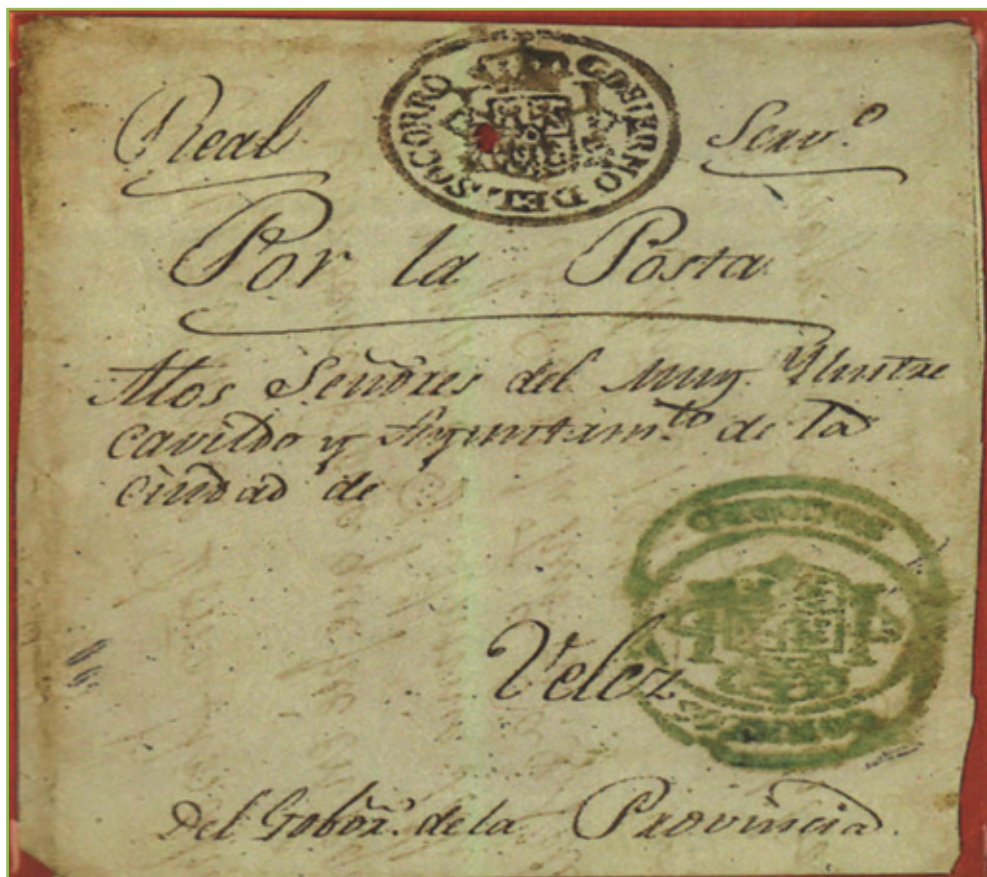 GOBIERNO DEL SOCORRO
Real Serv.º
Por la Posta
Alos Señores del Muy. Yllustre
Cavildo y Ayuntam.to de la
Ciudad de
Velez
Del Gobor.º de la Provincia.